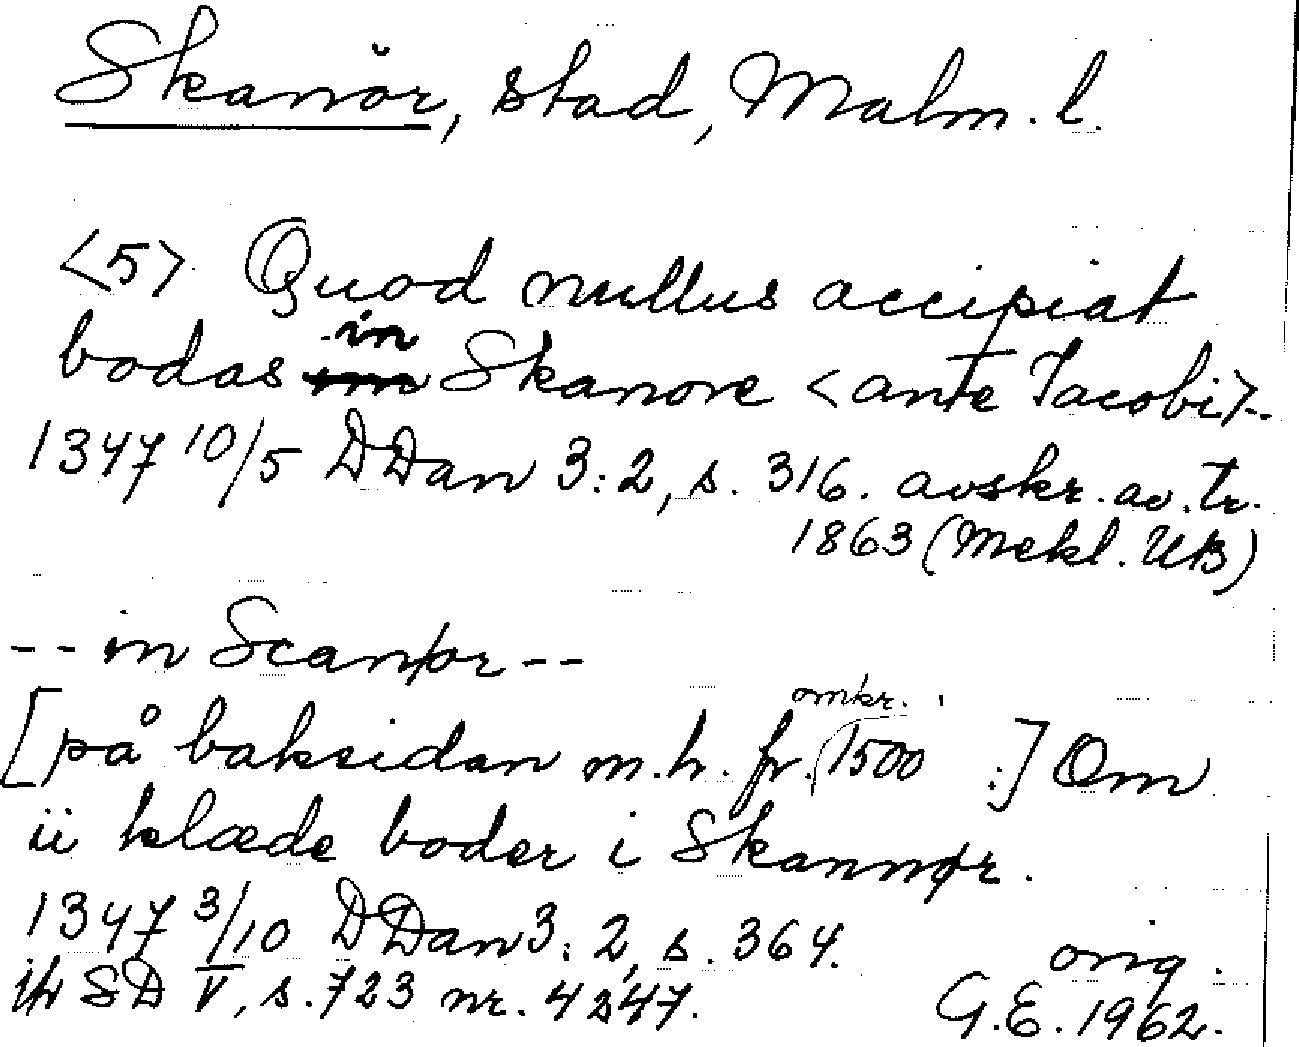 Skanör, stad, Malm. l.
<5> Quod nullus accipiat
bodas in Skanore <ante Jacobi>--
1347 10/5 DDan 3:2, s. 316. avskr. av. tr.
1863 (Mekl. UB)
-- in Scanør --
[på baksidan m.h. fr. omkr. 1500 .] Om
ii klæde boder i Skannør.
1347 3/10 DDan 3:2, s. 364. orig.
jfr SD V, s. 723 nr. 4247. G.E. 1962.